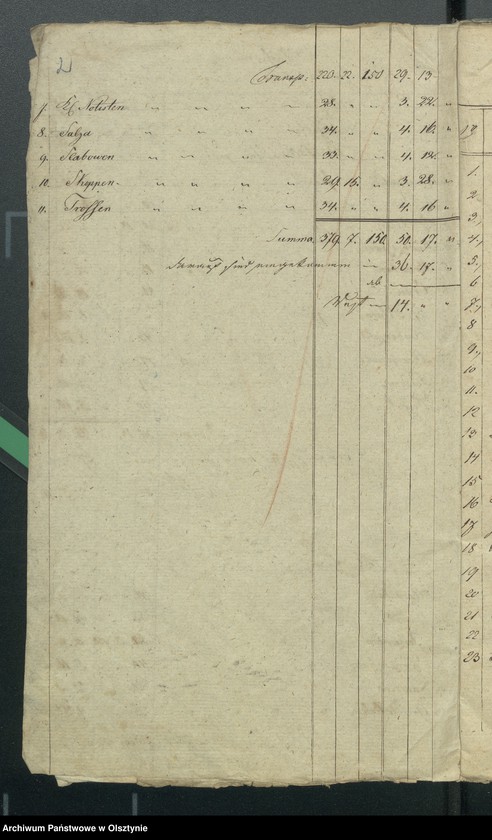 2
Transp: 220. 22. 150 29. 13
7. Kl Notisten " " " " 28. " " 3. 22. "
8. Salza " " " " 34. " " 4. 16. "
9. Slabowen " " " " 33. " " 4. 12. "
10. Skeppen " " " " 29. 15. " 3. 28. "
11. Troffen " " " " 34. " " 4. 16 "
Summa 379. 7. 150. 50. 17. "
sind eingekommen 36. 17. "
ab
Rest 14. " "
1.
2.
3.
4.
5.
6
7.
8
9.
10
11.
12
13
14
15
16
17
18
19
20
21
22
23
Archiwum Państwowe w Olsztynie